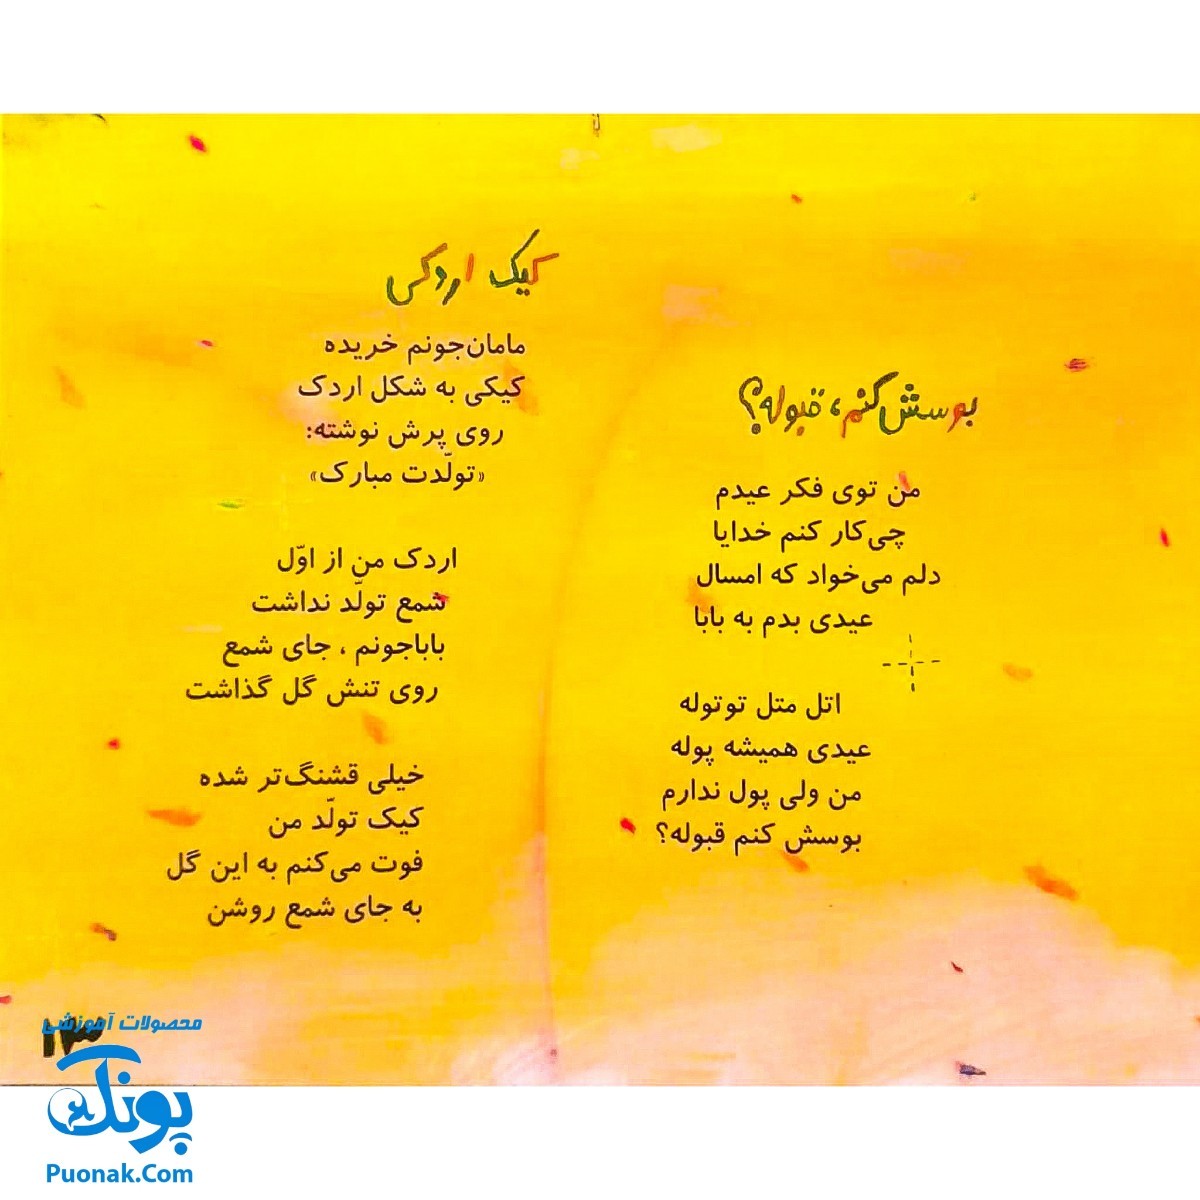 بوسش کنم، قبوله؟
من توی فکر عیدم
چی‌کار کنم خدایا
دلم می‌خواد که امسال
عیدی بدم به بابا
اتل متل توتوله
عیدی همیشه پوله
من ولی پول ندارم
بوسش کنم قبوله؟
کیک اردکی
مامان‌جونم خریده
کیکی به شکل اردک
روی پرش نوشته:
«تولّدت مبارک»
اردک من از اوّل
شمع تولّد نداشت
باباجونم ، جای شمع
روی تنش گل گذاشت
خیلی قشنگ‌تر شده
کیک تولّد من
فوت می‌کنم به این گل
به جای شمع روشن
۱۳
محصولات آموزشی
پونک
Puonak.Com